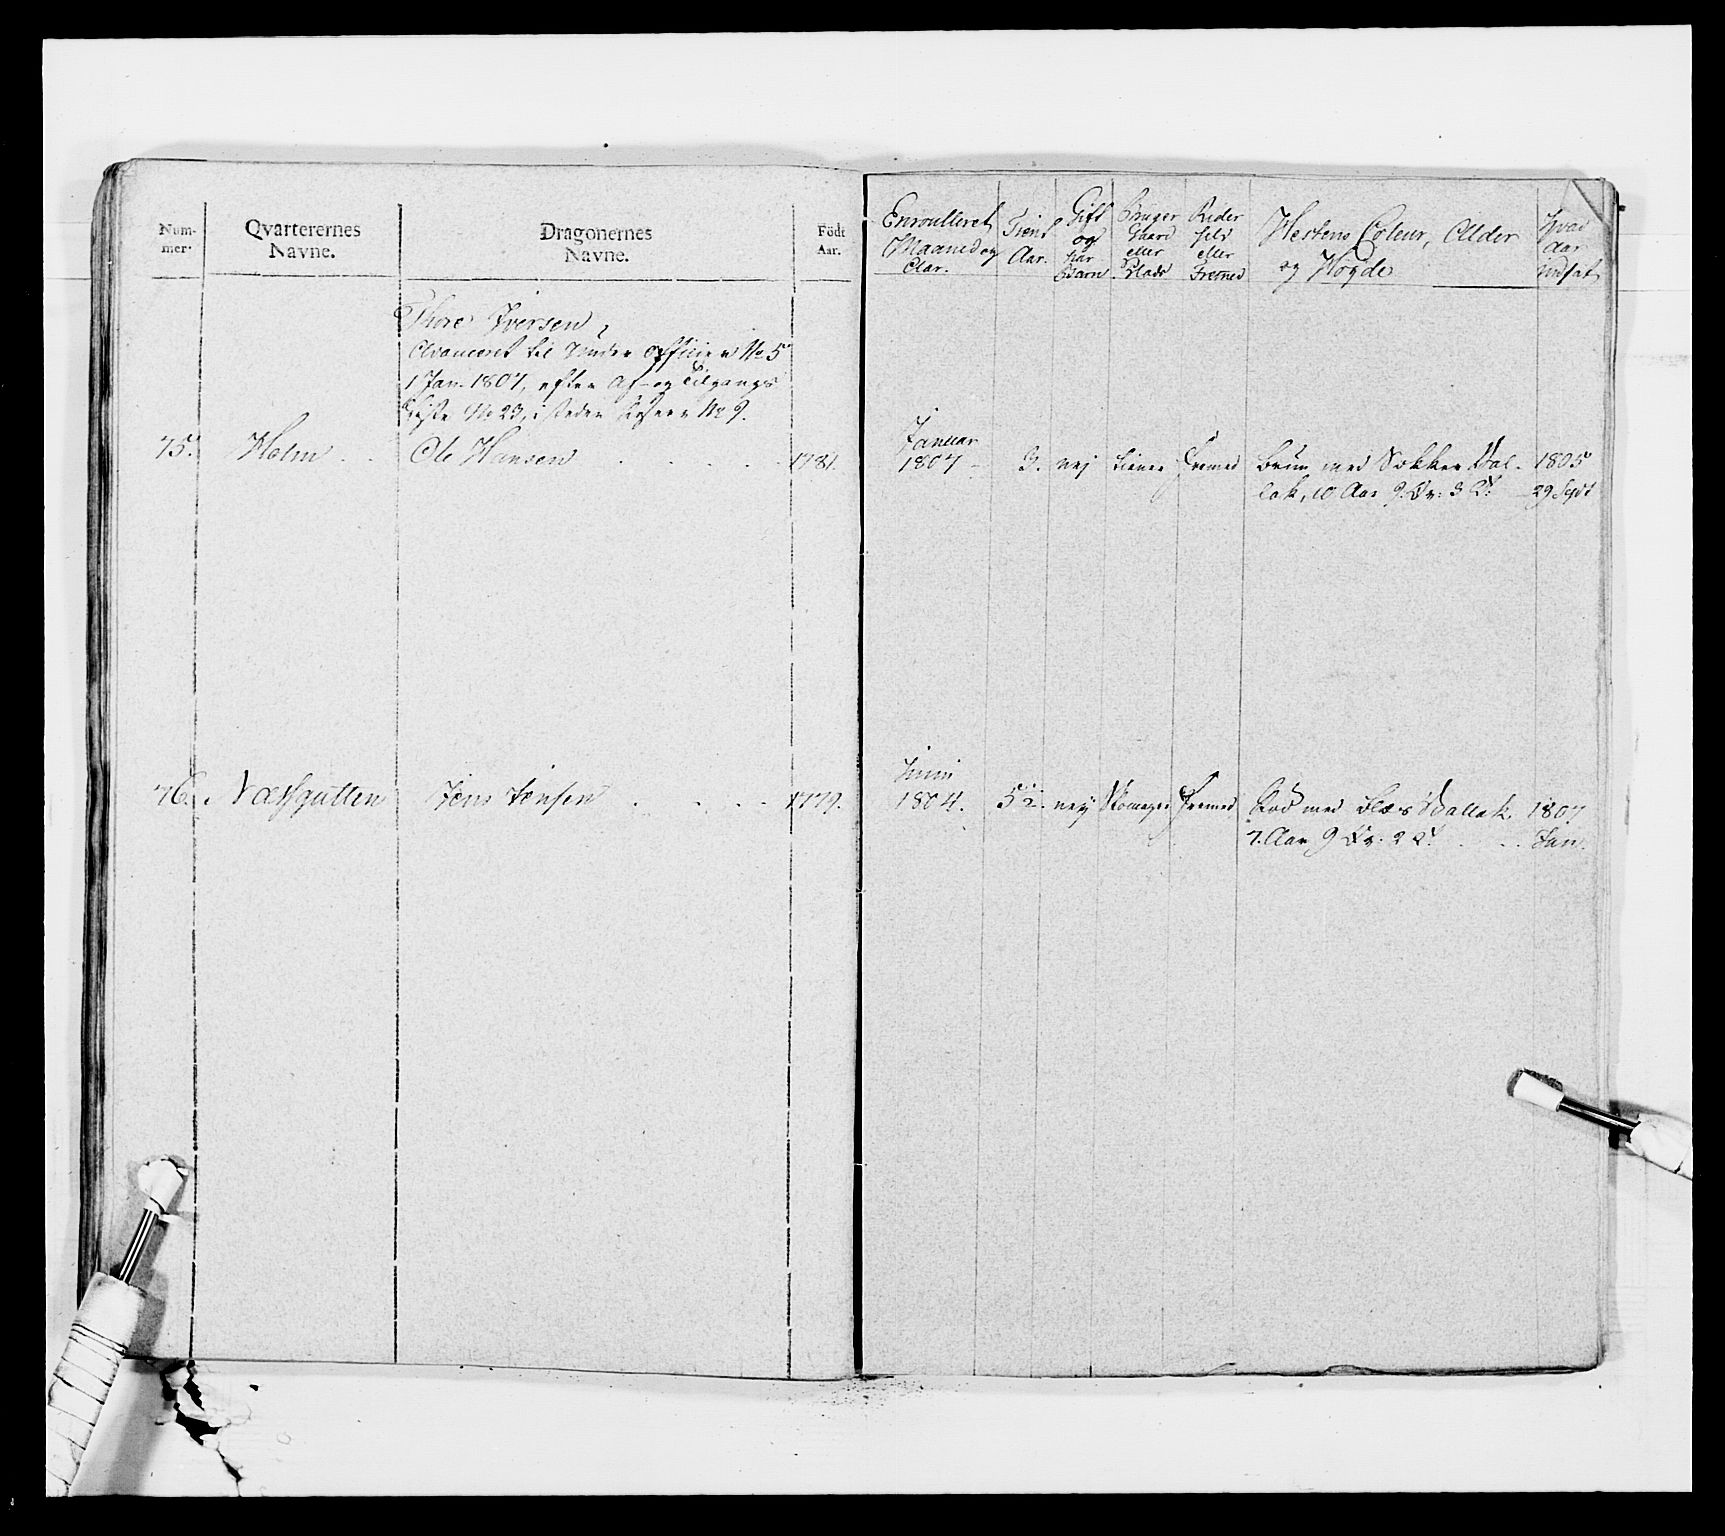 Num-
mer.
Qvarterernes
Navne.
Dragonernes
Navne.
Födt
Aar.
Enroulleret
Maaned og
Aar.
Tient
Aar.
Gift
og
har
Børn
Bruger
Gaard
eller
Plads
Rider
selv
eller
Fremed
Hestens Coleur, Alder
og Høyde
Hvad
Aar
indsat
Thore Iversen,
Avanceret til Under Officier No 5
1 Jan. 1807, efter Af- og Tilgangs
Liste No 23, i steden No 9.
75. Holm Ole Hansen 1781. Januar
1807 3. nej tiener Fremed Brun med Sokker Val-
lak, 10 Aar 9 Qv: 3 T. 1805
29 Sept
76. Næssgutten Jens Jensen 1779. Junii
1804. 5 1/2. nej Fremed Rød med Blæs Vallak. 1807
7. Aar 9 Qv: 2 T. Jan.